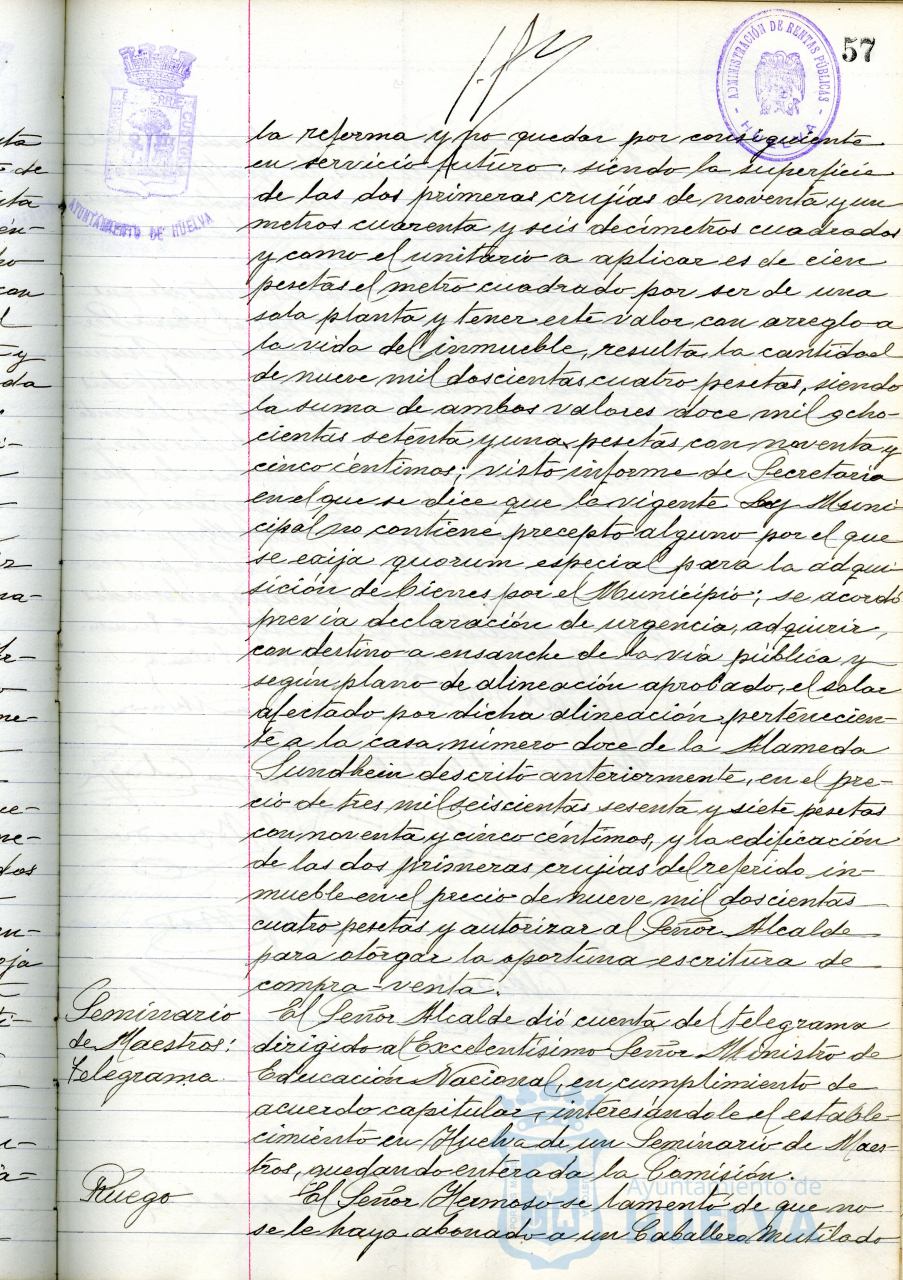 57
ADMINISTRACIÓN DE RENTAS PÚBLICAS
HUELVA
AYUNTAMIENTO DE HUELVA
la reforma y no quedar por consiguiente
en servicio futuro, siendo la superficie
de las dos primeras crujías de noventa y un
metros cuarenta y seis decímetros cuadrados
y como el unitario a aplicar es de cien
pesetas el metro cuadrado por ser de una
sola planta y tener este valor con arreglo a
la vida del inmueble, resulta la cantidad
de nueve mil doscientas cuatro pesetas, siendo
la suma de ambos valores doce mil ocho-
cientas setenta y una pesetas con noventa y
cinco céntimos; visto informe de Secretaría
en el que se dice que la vigente Ley Muni-
cipal no contiene precepto alguno por el que
se exija quorum especial para la adqui-
sición de bienes por el Municipio; se acordó
previa declaración de urgencia, adquirir,
con destino a ensanche de la vía pública y
según plano de alineación aprobado, el solar
afectado por dicha alineación pertenecien-
te a la casa número doce de la Alameda
Sundhein descrito anteriormente, en el pre-
cio de tres mil seiscientas sesenta y siete pesetas
con noventa y cinco céntimos, y la edificación
de las dos primeras crujías del referido in-
mueble en el precio de nueve mil doscientas
cuatro pesetas y autorizar al Señor Alcalde
para otorgar la oportuna escritura de
compra-venta.
Seminario
de Maestros:
Telegrama
El Señor Alcalde dió cuenta del telegrama
dirigido al Excelentísimo Señor Ministro de
Educación Nacional, en cumplimiento de
acuerdo capitular, interesándole el estable-
cimiento en Huelva de un Seminario de Maes-
tros, quedando enterada la Comisión.
Ruego
El Señor Hermoso se lamentó de que no
se le haya abonado a un Caballero Mutilado
Ayuntamiento de
HUELVA